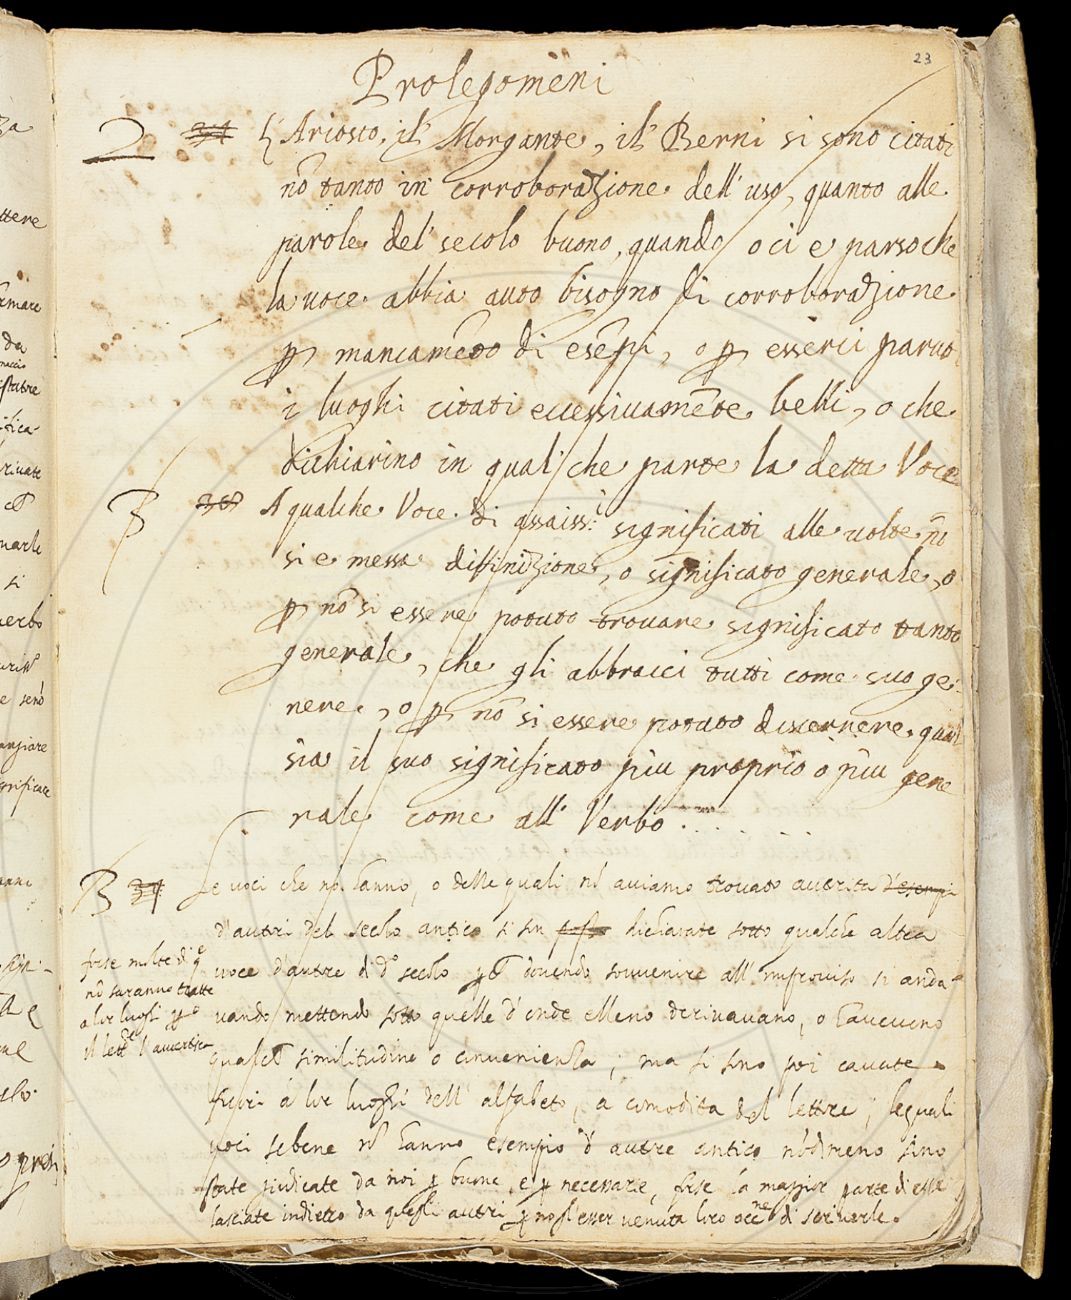 23
Prolegomeni
2 34 L'Ariosto, il Morgante, il Berni si sono citati
nō tanto in corroborazione dell'uso, quanto alle
parole del secolo buono, quando o ci e parso che
la voce abbia auto bisogno di corroborazione
p mancamēto di esēpi, o p esserci paruti
i luoghi citati eccessiuamēte belli, o che
dichiarino in qualche parte la detta Voce
3 38 A qualche Voce di assaiss.i significati alle uolte nō
si e messa diffinizione, o significato generale, o
p nō si essere potuto trouare significato tanto
generale, che gli abbracci tutti come suo ge-
nere, o p nō si essere potuto discernere qual
sia il suo significato piu proprio o piu gene
rale come all' Verbo . . . . .
3 34 Le voci che nō hanno, o delle quali nō auiamo trouato autorita d'esempi
d'autori del secolo antico si son dichiarate sotto qualche altra
voce d'autore di d.o secolo pchē douendo souuenire all'improuiso si anda-
uando mettendo sotto quelle d'onde elleno deriuauano, o haueuono
qualchē similitudine o conuenienza; ma si sono poi cauate
fuori a' lor luoghi dell'alfabeto, a comodita del lettore; le quali
uoci sebene nō hanno esempio d'autore antico nōdimeno sono
state giudicate da noi p buone, e p necessarie, forse la maggior parte di esse
lasciate indietro da quegli autori p nō esser uenuta loro occ.ne di scriuerle.
forse molte di q.e
nō saranno tratte
a lor luoghi p.o
il lett.e l'auuertisca